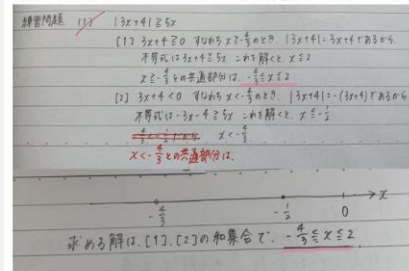 練習問題 (1) |3x+4|≧5x
[1] 3x+4≧0 すなわち x≧-4/3 のとき、|3x+4|=3x+4であるから、
不等式は3x+4≧5x これを解くと、x≦2
x≧-4/3との共通部分は、-4/3≦x≦2
[2] 3x+4<0 すなわち x<-4/3 のとき、|3x+4|=-(3x+4)であるから
不等式は-3x-4≧5x これを解くと、x≦-1/2
x<-4/3
x<-4/3との共通部分は、
-4/3 -1/2 0 x
求める解は、[1]、[2]の和集合で、-4/3≦x≦2